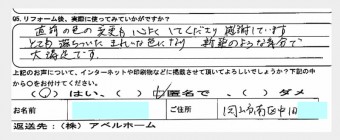 Q5. リフォーム後、実際に使ってみていかがですか？
直前の色の変更も心よくしてくださり感謝しています
とても落ちついたきれいな色になり 新築のような気分で
大満足です。
上記のお声について、インターネットや印刷物などに掲載させて頂いてよろしいでしょうか？下記の中
から○をお付けください。
（○）はい、（○）匿名で、（ ）ダメ
お名前 ご住所 岡山市南区中畦
返送先：（株）アベルホーム